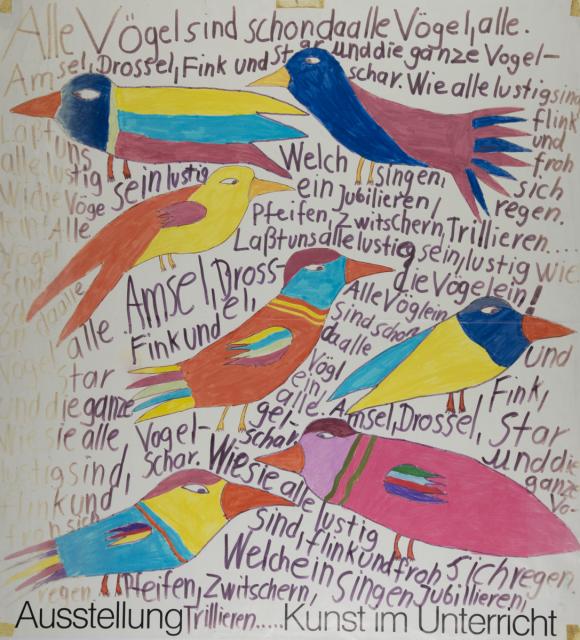 Alle Vögel sind schon da alle Vögel, alle.
Amsel, Drossel, Fink und Star und die ganze Vogel-
schar. Wie alle lustig sind
flink
und
froh
sich
regen.
Laßt
uns
alle lustig sein lustig
Wie die
Vöge
lein! Alle
Vögel
sind
schon
da alle
Vögel
alle
Welch
ein
singen,
Jubilieren,
Pfeifen, Zwitschern, Trillieren....
Laßt uns alle lustig sein, lustig wie
die Vögelein!
Amsel, Dross-
el,
Fink und
Star
und die ganze
Vogel-
schar.
Wie sie alle
lustig sind,
flink und
froh sich
regen.
Alle Vöglein
sind schon
da alle
Vögl
ein,
alle. Amsel, Drossel,
Fink,
Star
und
und die
ganze
Vo-
gel-
schar.
Wie sie alle
lustig
sind, flink und froh sich regen.
Welch ein Singen Jubilieren,
Pfeifen, Zwitschern,
Trillieren.....
Ausstellung Kunst im Unterricht